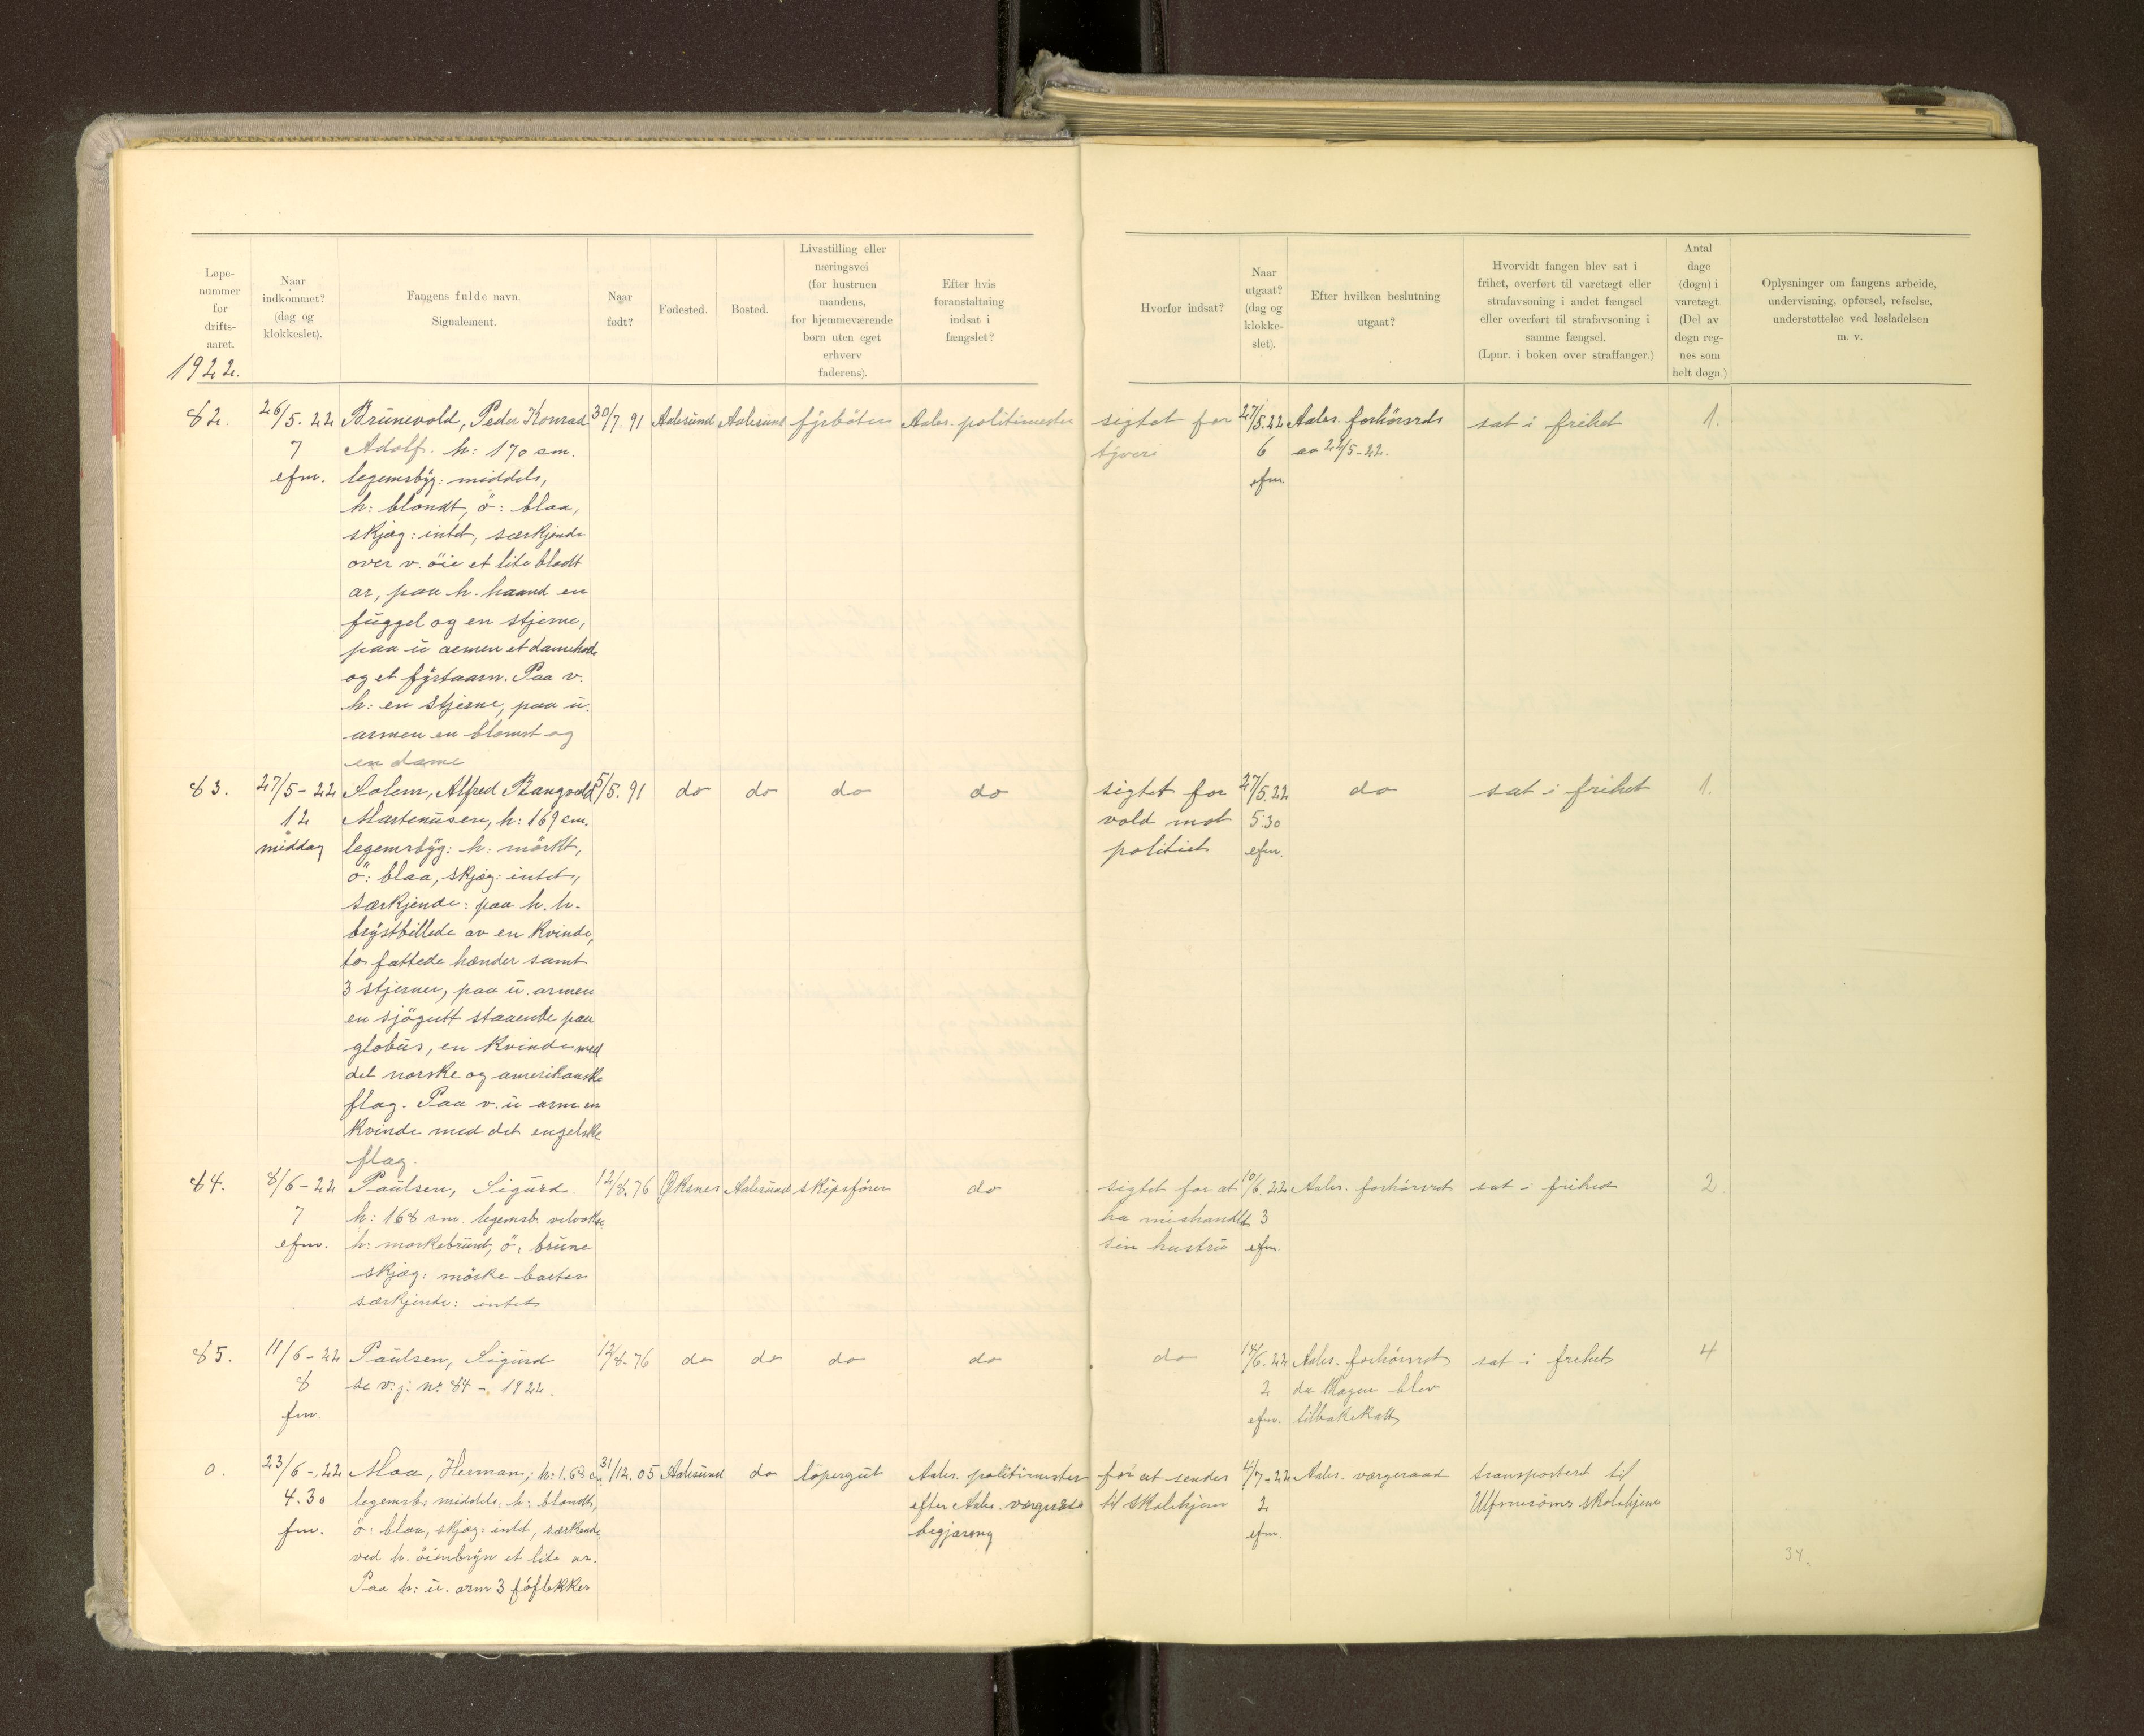 Løpe-
nummer
for
drifts-
aaret.
1922.
Naar
indkommet?
(dag og
klokkeslet).
Fangens fulde navn.
Signalement.
Naar
født?
Fødested.
Bosted.
Livsstilling eller
næringsvei
(for hustruen
mandens,
for hjemmeværende
børn uten eget
erhverv
faderens).
Efter hvis
foranstaltning
indsat i
fængslet?
Hvorfor indsat?
Naar
utgaat?
(dag og
klokke-
slet).
Efter hvilken beslutning
utgaat?
Hvorvidt fangen blev sat i
frihet, overført til varetægt eller
strafavsoning i andet fængsel
eller overført til strafavsoning i
samme fængsel.
(Lpnr. i boken over straffanger.)
Antal
dage
(døgn) i
varetægt.
(Del av
døgn reg-
nes som
helt døgn.)
Oplysninger om fangens arbeide,
undervisning, opførsel, refselse,
understøttelse ved løsladelsen
m. v.
82.
26/5. 22
7
efm.
Brunevold, Peder Konrad
Adolf. h: 170 sm.
legemsbyg: middels,
h: blondt, ö: blaa,
skjæg: intet, særkjende
over v. öie et lite blodt
ar, paa h. haand en
fuggel og en stjerne,
paa u armen et damehode
og et fyrtaarn. Paa v.
h: en stjerne, paa u.
armen en blomst og
en dame
30/7. 91
Aalesund
Aalesund
fyrböter
Aales. politimester
sigtet for
tjveri
27/5. 22
6
efm
Aales. forhörsrets
av 22/5-22.
sat i frihet
1.
83.
27/5-22
12
middag
Aolem, Alfred Bangvold
Martenusen, h: 169 cm.
legemsbyg: h: mörkt,
ö: blaa, skjæg: intet,
særkjende: paa h. h.
brystbillede av en kvinde,
to fattede hænder samt
3 stjerner, paa u. armen
en sjögutt staaende paa
globus, en kvinde med
det norske og amerikanske
flag. Paa v. u arm en
kvinde med det engelske
flag.
5/5. 91
do
do
do
do
sigtet for
vold mot
politiet
27/5. 22
5.30
efm.
do
sat i frihet
1.
84.
8/6-22
7
efm.
Paulsen, Sigurd.
h: 168 sm. legemsb. velvokse
h: morkebrunt, ö: brune
skjæg: mörke barter
særkjende: intet
12/8. 76
Øksnes
Aalesund
skipsfören
do
sigtet for at
ha mishandlet
sin hustru
10/6. 22
3
efm.
Aales. forhörsret
sat i frihet
2
85.
11/6-22
8
fm.
Paulsen, Sigurd
se v. j: nº 84 - 1922.
12/8-76
do
do
do
do
do
14/6. 22
2
efm.
Aales. forhörsret
da klagen blev
tilbakekalt
sat i frihet
4
0.
23/6-22
4.30
fm.
Moa, Herman, h: 1.68 cm
legemsb: middels, h: blondt,
ö: blaa, skjæg: intet, særkende
ved h. öienbryn et lite ar.
Paa h: u. arm 3 föflekker
31/12. 05
Aalesund
do
löpergut
Aales. politimester
efter Aales. vergeraads
begjæring
for at sendes
til skolehjem
4/7-22
2
efm.
Aales. værgeraad
transportert til
Ulfsnesöens skolehjem
34.